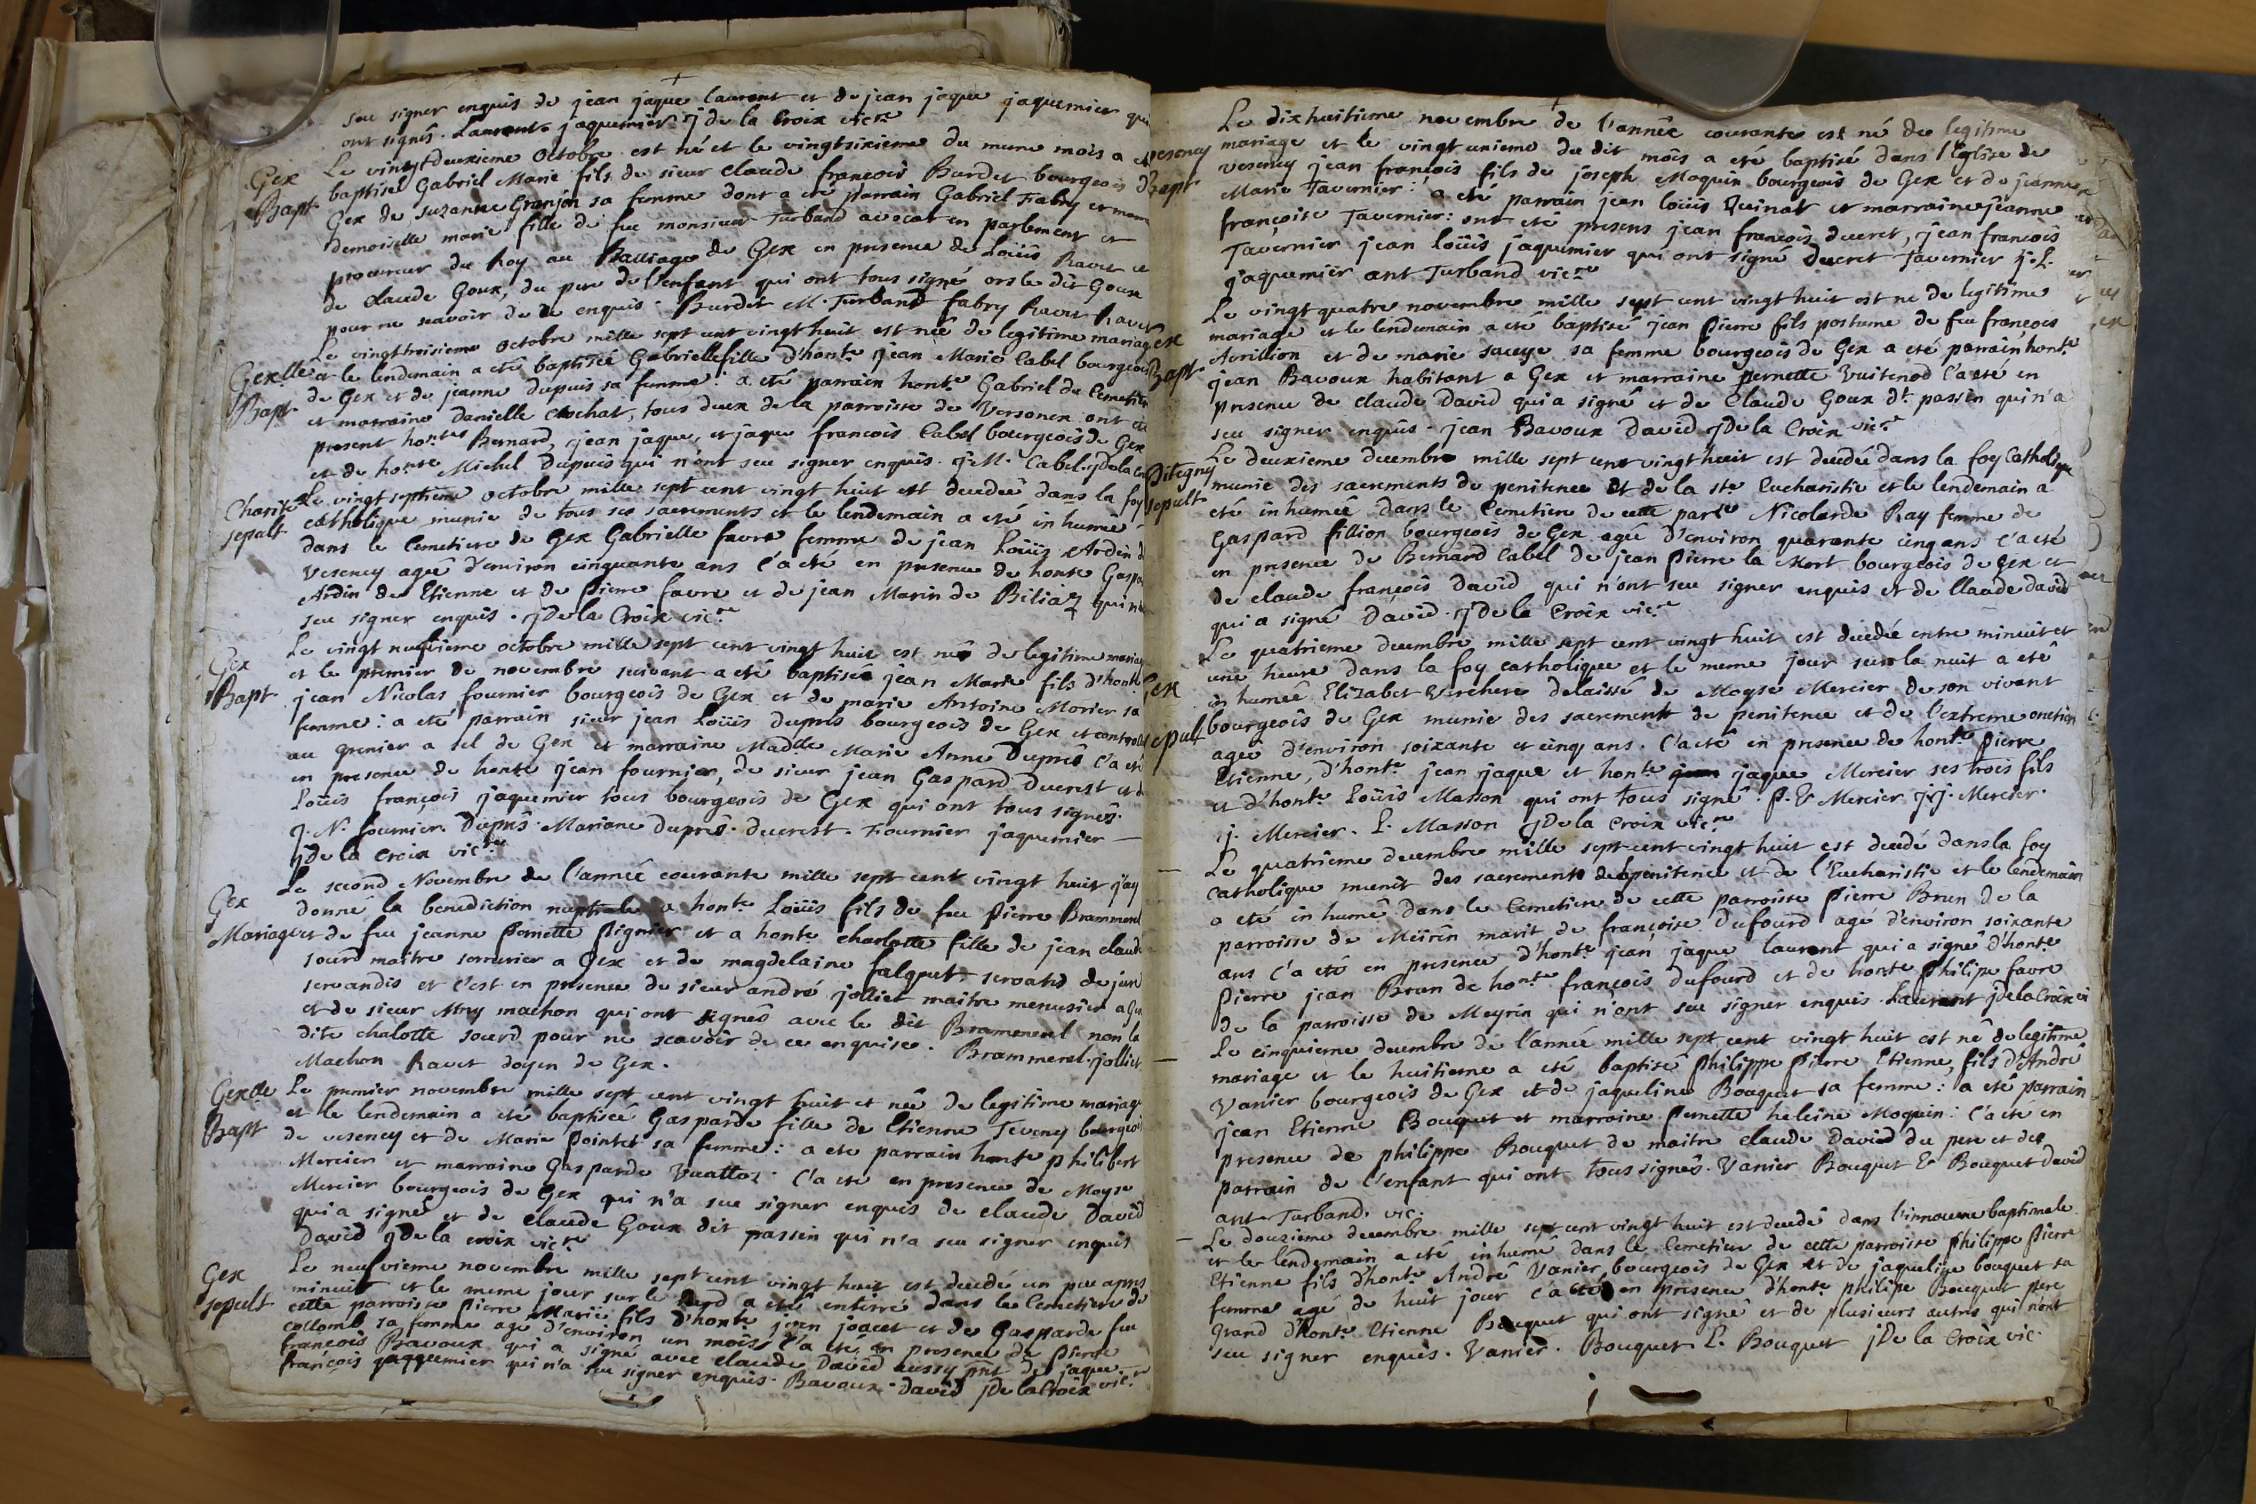 seu signer enquis de jean jaque laurent et de jean jaque jaquemier qui
ont signés. Laurent jaquemier j de la Croix vicre
Gex
Bapt
Le vingtdeuxieme Octobre est né et le vingtsixieme du meme mois a eté
baptisé Gabriel Marie fils de sieur Claude françois Burdet bourgeois de
Gex de Suzanne Granjon sa femme dont a eté parrain Gabriel Fabry et marr
demoiselle marie fille de feu monsieur Turband avocat en parlement et
procureur du Roy au Balliage de Gex en presence de Loüis Ravet et
de claude Goux, du pere de l'enfant qui ont tous signé ors le dit Goux
pour ne scavoir de ce enquis. Burdet M. Turband fabry Ravet Ravet
Gexlle
Bapt
Le vingttroisieme octobre mille sept cent vingt huit est née de legitime mariage
et le lendemain a eté baptisée Gabrielle fille d'honte jean Marie Cabel bourgeois
de Gex et de jeanne dupuis sa femme: a eté parrain honte Gabriel du Cemetiere
et marraine Danielle Crochat, tous deux de la parroisse de Versonex ont eté
present hontes Bernard, jean jaque, et jaque francois Cabel bourgeois de Gex
et de honte Michel Dupuis qui n'ont seu signer enquis. J.M. Cabel. jDela Cro
Charité
sepult
Le vingt septieme octobre mille sept cent vingt huit est decedée dans la foy
catholique munie de tous ses sacrements et le lendemain a eté inhumée
dans le Cemetiere de Gex Gabrielle favre femme de jean Loüis Ardin de
Vesency agée d'environ cinquante ans c'a eté en presence de honte Gaspa
Ardin de Etienne et de Pierre favre et de jean Marin de Biliaz qui n'o
seu signer enquis. jDela Croix vicre
Gex
Bapt
Le vingt neufvieme octobre mille sept cent vingt huit est né de legitime mariage
et le premier de novembre suivant a eté baptisée jean Marie fils d'honte
jean Nicolas fournier bourgeois de Gex et de marie Antoine Morier sa
femme: a eté parrain sieur jean Loüis Duprés bourgeois de Gex et controll
au grenier a sel de Gex et marraine Madlle Marie Anne Duprés c'a eté
en presence de honte jean fournier, de sieur jean Gaspard Ducrest et de
Loüis françois jaquemier tous bourgeois de Gex qui ont tous signés.
J. N. fournier. Duprés. Mariane duprés. ducrest. Fournier jaquemier
jDe la Croix vicre
Gex
Mariage
Le second Novembre de l'année courante mille sept cent vingt huit j'ay
donné la benediction nuptiale a honte Loüis fils de feu Pierre Brammerel
et de feu jeanne Pernette Pignier et a honte charlotte fille de jean claude
sourd maitre serrurier a Gex et de magdelaine falquet servatis de jure
servandis et c'est en presence de sieur andré jolliet maitre menusier a Gex
et de sieur Mny machon qui ont signés avec le dit Bramerel non la
dite chalotte sourd pour ne scavoir de ce enquise. Brammerel. jolliet
Machon Ravet doyen de Gex.
Gexlle
Bapt
Le premier novembre mille sept cent vingt huit et née de legitime mariage
et le lendemain a eté baptisée Gasparde fille de Etienne Teveny bourgeois
de vesency et de Marie Pointet sa femme: a eté parrain honte Philibert
Mercier et marraine Gasparde Vuattoz. C'a eté en presence de Moyse
Mercier bourgeois de Gex qui n'a seu signer enquis de claude David
qui a signé et de claude Goux dit passin qui n'a seu signer enquis
David jDe la croix vicre
Gex
sepult
Le neufvieme novembre mille sept cent vingt huit est decedé un peu apres
minuit et le meme jour sur le tard a eté enterré dans le Cemetiere de
cette parroisse Pierre Marie fils d'honte jean joacet et de Gasparde feu
collomb sa femme agé d'environ un moiss c'a eté en presence de Pierre
françois Bavoux qui a signé avec claude David aussy pnt de jaque
françois jaquemier qui n'a seu signer enquis. Bavoux. david jDe la Croix vicre
Vesency
Bapt
Le dixhuitieme novembre de l'année courante est né de legitime
mariage et le vingt unieme du dit mois a eté baptisé dans l'Eglise de
vesency jean françois fils de joseph Moquin bourgeois de Gex et de jeanne
Marie Tavernier: a eté parrain jean Loüis Quinat et marraine jeanne
françoise Tavernier: ont eté presens jean françois ducret, jean françois
Tavernier jean Loüis jaquemier qui ont signé ducret Tavernier J. L.
jaquemier ant Turband vicre
Gex
Bapt
Le vingt quatre novembre mille sept cent vingt huit est né de legitime
mariage et le lendemain a eté baptisé jean Pierre fils postume de feu françois
Avrillion et de marie sacuye sa femme bourgeois de Gex a eté parrain honte
jean Bavoux habitant a Gex et marraine pernette Vuitenod c'a eté en
presence de claude David qui a signé et de Claude Goux dt passin qui n'a
seu signer enquis. jean Bavoux David jDe la Croix vicre
Pitegny
sepult
Le deuxieme decembre mille sept cent vingt huit est decedée dans la foy Catholique
munie des sacrements de penitence et de la ste Eucharistie et le lendemain a
eté inhumée dans le Cemetiere de cette parse Nicolarde Ray femme de
Gaspard fillion bourgeois de Gex agé d'environ quarante cinq ans c'a eté
en presence de Bernard Cabel de jean Pierre la Mort bourgeois de Gex et
de claude françois David qui n'ont seu signer enquis et de Claude david
qui a signé David. jDe la Croix vicre
Gex
sepult
Le quatrieme decembre mille sept cent vingt huit est decedée entre minuit et
une heure dans la foy catholique et le meme jour sur la nuit a eté
inhumée Elizabet Verchere delaissé de Moyse Mercier de son vivant
bourgeois de Gex munie des sacrements de penitence et de l'extreme onction
agée d'environ soixante et cinq ans. C'a eté en presence de honte Pierre
Etienne, d'honte jean jaque et honte jaque Mercier ses trois fils
et d'honte Loüis Masson qui ont tous signé. P. E Mercier j.j. Mercier.
j. Mercier. L. Masson jDe la Croix vicre
Le quatrieme decembre mille sept cent vingt huit est decedé dans la foy
catholique munit des sacrements de penitence et de l'Eucharistie et le lendemain
a eté inhumé dans le Cemetiere de cette parroisse Pierre Brun de la
parroisse de Meirin marit de françoise dufourd agé d'environ soixante
ans c'a eté en presence d'honte jean jaque laurent qui a signé d'honte
Pierre jean Brun de honte françois dufourd et de honte Philipe favre
de la parroisse de Meyrin qui n'ont seu signer enquis. Laurent jDela Croix vi
Le cinquieme decembre de l'année mille sept cent vingt huit est né de legitime
mariage et le huitieme a eté baptisé Philippe Pierre Etienne, fils d'André
Vanier bourgeois de Gex et de jaqueline Bouquet sa femme: a eté parrain
jean Etienne Bouquet et marraine Pernette heleine Moquin: c'a eté en
presence de philippe Bouquet de maitre claude David du pere et des
parrain de l'enfant qui ont tous signés. Vanier Bouquet E Bouquet David
ant Turband. vic.
Le douzieme decembre mille sept cent vingt huit est decedé dans l'innocence baptismale
et le lendemain a eté inhumé dans le Cemetiere de cette parroisse Philippe Pierre
Etienne fils d'honte André Vanier, bourgeois de Gex et de jaqueline bouquet sa
femme agé de huit jour c'a eté en presence d'honte philipe Bouquet pere
grand d'honte Etienne Bouquet qui ont signé et de plusieurs autres qui n'ont
seu signer enquis. Vanier. Bouquet E. Bouquet jDe la Croix vic.